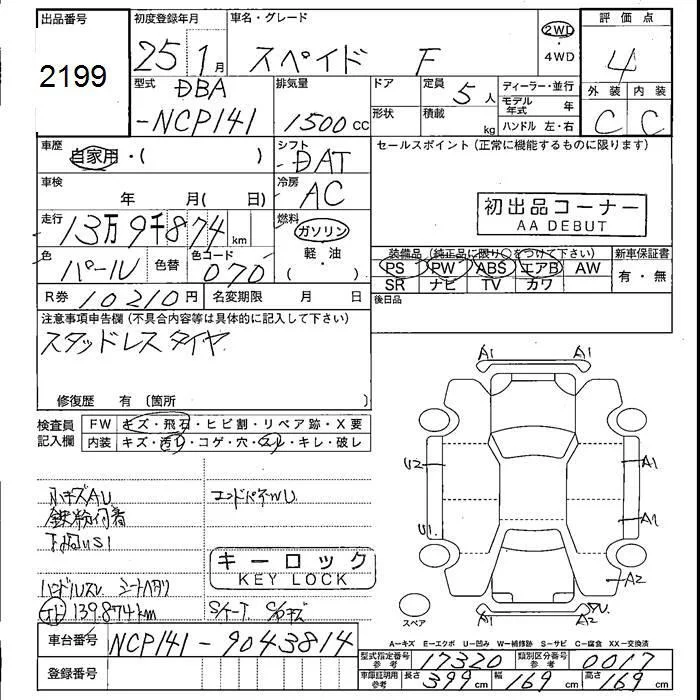 出品番号 初度登録年月 車名・グレード 評価点
2199 25 1月 スペイド F 2WD 4WD 4
型式 DBA 排気量 ドア 定員 5人 ディーラー・並行 外装 内装
-NCP141 1500cc 形状 積載 kg モデル年式 年 C C
ハンドル 左・右
車歴 自家用・( ) シフト DAT セールスポイント(正常に機能するものに限ります)
車検 年 月( 日) 冷房 AC
初出品コーナー
AA DEBUT
走行 13万9千874km 燃料 ガソリン
軽・油
( ・ )
色 パール 色替 色コード 070
装備品(純正品に限り○をつけて下さい) 新車保証書
PS PW ABS エアB AW 有・無
SR ナビ TV カワ
R券 10210円 名変期限 月 日 後日品
注意事項申告欄(不具合内容等は具体的に記入して下さい)
スタッドレスタイヤ
修復歴 有(箇所 )
検査員 FW キズ・飛石・ヒビ割・リペア跡・X要
記入欄 内装 キズ・汚レ・コゲ・穴・スレ・キレ・破レ
A1 A1
U2 A1
U1 A1
A2
A1 A2
小キズAU エンドパネWU
鉄粉付着
キーロック
KEY LOCK
ハンドルスレ シートヘタリ
139.874km
スペア
車台番号 NCP141-9043814
登録番号
A-キズ E-エクボ U-凹み W-補修跡 S-サビ C-腐食 XX-交換済
型式指定番号 参考 17320 類別区分番号 参考 0017
車庫証明用 参考 長さ 399cm 幅 169cm 高さ 169cm